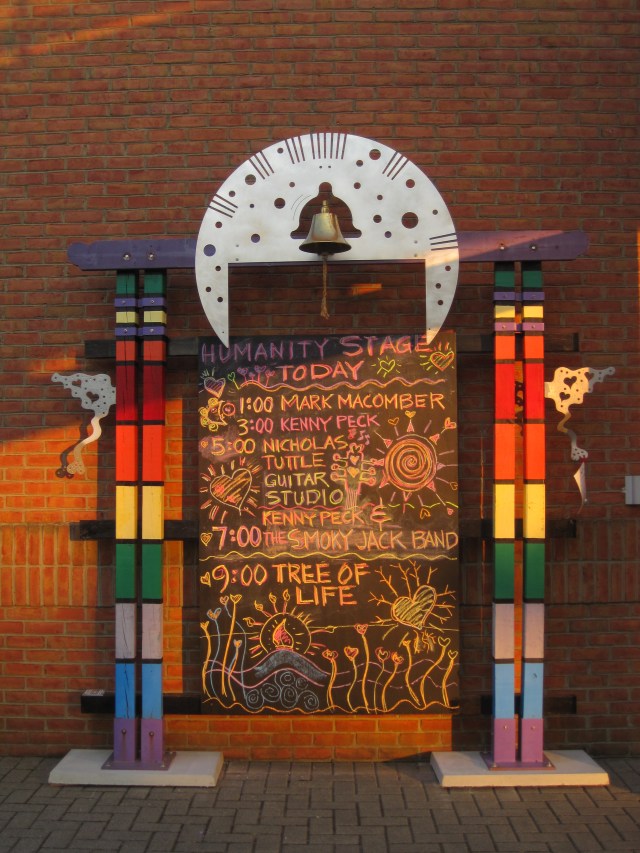 HUMANITY STAGE
TODAY
1:00 MARK MACOMBER
3:00 KENNY PECK
5:00 NICHOLAS
TUTTLE
GUITAR
STUDIO
KENNY PECK &
7:00 THE SMOKY JACK BAND
9:00 TREE OF
LIFE